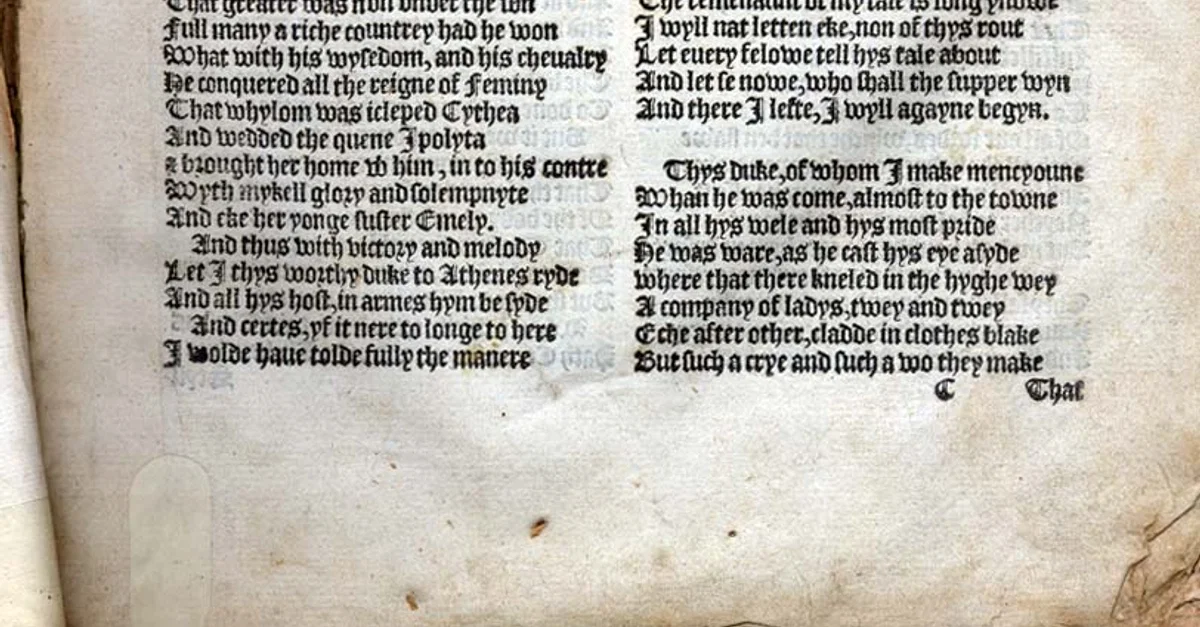 That greater was non vnder the son
Full many a riche countrey had he won
What with his wysedom, and his cheualry
He conquered all the reigne of Feminy
That whylom was icleped Cythea
And wedded the quene Ipolyta
& brought her home w him, in to his contre
Wyth mykell glory and solempnyte
And eke her yonge suster Emely.
And thus with victory and melody
Let I thys worthy duke to Athenes ryde
And all hys host, in armes hym be syde
And certes, yf it nere to longe to here
I wolde haue tolde fully the manere
The remenaunt of my tale is long ynowe
I wyll nat letten eke, non of thys rout
Let euery felowe tell hys tale about
And let se nowe, who shall the supper wyn
And there I lefte, I wyll agayne begyn.
Thys duke, of whom I make mencyoune
Whan he was come, almost to the towne
In all hys wele and hys most pride
He was ware, as he cast hys eye asyde
Where that there kneled in the hyghe wey
A company of ladys, twey and twey
Eche after other, cladde in clothes blake
But such a crye and such a wo they make
C That